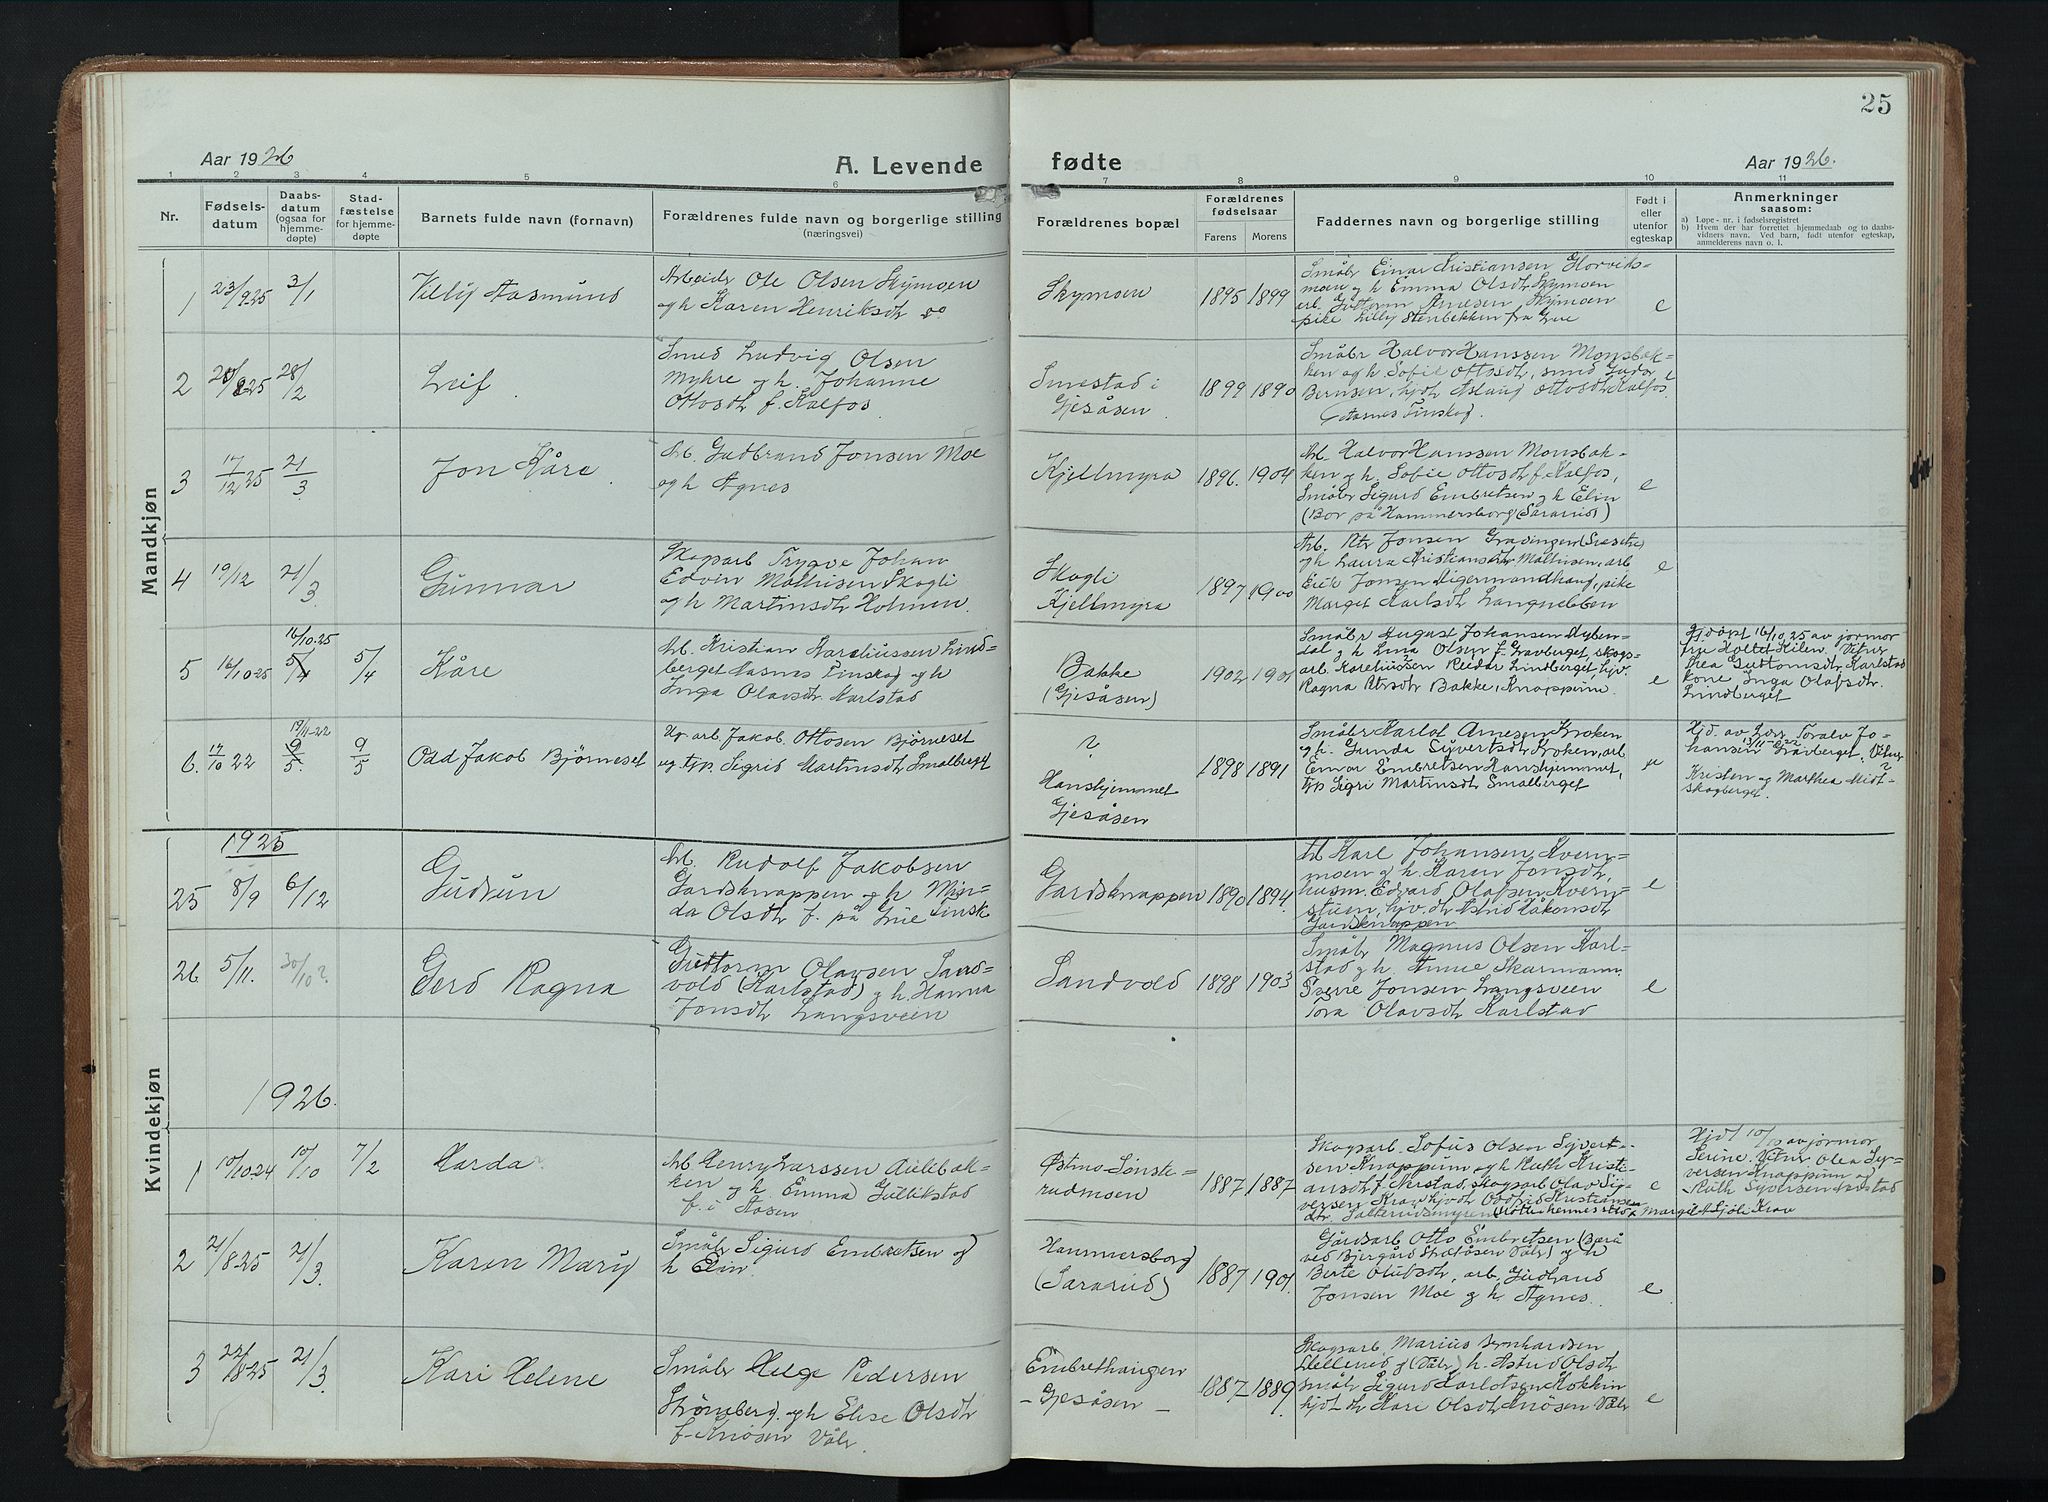 25
Aar 1926
A. Levende
fødte
Aar 1926.
1 2 3 4 5 6 7 8 9 10 11
Nr.
Fødselsdatum
Daabsdatum (ogsaa for hjemmedøpte)
Stadfæstelse for hjemmedøpte
Barnets fulde navn (fornavn)
Forældrenes fulde navn og borgerlige stilling (næringsvei)
Forældrenes bopæl
Forældrenes fødselsaar
Farens Morens
Faddernes navn og borgerlige stilling
Født i eller utenfor egteskap
Anmerkninger saasom:
a) Løpe-nr. i fødselsregistret
b) Hvem der har forrettet hjemmedaab og to daabsvidners navn. Ved barn, født utenfor egteskap, anmelderens navn o. l.
Mandkjøn
1 23/9 25 3/1 Villy Aasmund
Arbeider Ole Olsen Skymoen
og h Karen Henriksdtr
Skymoen 1895 1899
Småbr Einar Kristiansen
moen og h Emma Olsdtr Skymoen
arb. Guttorm Arnesen Skymoen
pike Lilly Stenbekken fra
e
2 28/2 Leif
Smed Ludvig Olsen
Myhre og h. Johanne
Ottosdtr f. Kalfos
Smestad i
Gjesåsen 1899 1890
Småbr Halvor Hanssen Monsbak-
ken og h Sofie Ottosdtr, smed
Berntsen, hjdt Aslaug Ottosdtr Kalfos
Åsnes Finskog.
e
3 17/12 25 21/3 Jon Kåre
Arb. Gudbrand Jonsen Moe
og h Agnes
Kjellmyra 1896. 1904
Arb. Halvor Hanssen Monsbak-
ken og h. Sofie Ottosdtr f. Kalfos,
Småbr Sigurd Embretsen og h Elin
(Bor på Hammersborg (Sararud)
e
4 19/12 21/3 Gunnar
Skogsarb Trygve Johan
Edvin Mathisen Skogli
og h Martinsdtr Holmen.
Skogli
Kjellmyra 1897 1900
Arb. Jonsen
og h Laura Kristiansdtr Mathisen, arb
Erik Jonsen pike
Marget Karlsdtr Langnebben
e
5 16/10 25 16/10.25 5/4 5/4 Kåre
Arb. Kristian Kareliussen Lind-
berget Aasnes Finskog og h
Inga Olavsdtr Karlstad
Bakke
(Gjesåsen) 1902 1901
Småbr August Johansen Myben-
dal og h Lina Olsen f. Gravberget, skogs-
arb. Kareliusen Reidar Lindberget, hjv.
Ragna Bakke, Knappum.
e
Hj.døpt 16/10.25 av jormor
fru Holtet Kilen. Vitner
Thea Guttomsdtr Karlstad
kone Inga Olafsdtr.
Lindberget
6. 17/10 22 19/11-22 9/5. 9/5 Odd Jakob Bjørneset
Ug arb. Jakob Ottosen Bjørneset
ug. tjp. Sigrid Martinsdtr Smalberget
?
Hanshjemmet
Gjesåsen 1898 1891
Småbr Karlot Arnesen Kroken
og h. Gunda Syvertsdtr Kroken, arb
Einar Embretsen Hanshjemmet,
tjp Sigri Martinsdtr Smalberget
Hjd. av Toralv Jo-
hansen Gravberget, Vitner
Kristen og Marthea Midt-
skogberget
Kvindekjøn
1925
25 8/9 6/12 Gudrun
Arb. Rudolf Jakobsen
Gardsknappen og h
da Olsdtr f. på Grue Finsk
Gardsknappen 1890 1894.
Arb Karl Johansen Kvern-
moen og h. Karen Jonsdtr,
husm. Edvard Olafsen Kvern-
stuen, hjv. dtr Astrid Håkonsdtr
Gardsknappen
e
26 5/11. 30/10? Gerd Ragna
Guttorm Olavsen Sand-
vold (Karlstad) og h. Hanna
Jonsdtr Langsveen
Sandvold 1898 1903
Småbr Magnus Olsen Karl-
stad og h. Anne Skarmann
Sverre Jonsen Langsveen
Tora Olavsdtr Karlstad
e
1926.
1 10/10 24 10/10 7/2 Harda
Arb. Henry Larssen
ken og h. Emma Gullikstad
f. i Åsen
Østmo Sønste-
rudmoen 1887 1887
Skogsarb. Sofus Olsen Syvert-
sen Knappum og h Ruth Kristi-
ansdtr f. Nerstad, skogsarb Olav Sy-
versen Krav, hjvdtr Oddfrid Kristiansen
e
Hjdt 10/10 av jormor
Serine. Vitner Olea Sy-
versen Knappum og
Ruth Syversen
2 21/8-25 21/3. Karen Mary
Småbr Sigurd Embretsen og
h Elin.
Hammersborg
(Sararud) 1887 1901.
Gårdsarb Otto Embretsen
ved Bjergård Våler) og h
Berte Olufsdtr, arb. Gudbrand
Jonsen Moe og h. Agnes.
e
3 21/3. Kari Helene
Småbr Helge Pedersen
Strømberg. og h Elise Olsdtr
f. Knosen Våler.
Embrethaugen
- Gjesåsen - 1887 1889
Skogsarb Marius Bernhardsen
(Våler) h. Astrid Olsdtr
småbr Sigurd Karlstsen Kokkin
hjdt dtr Kare Olsdtr Knosen Våler
e